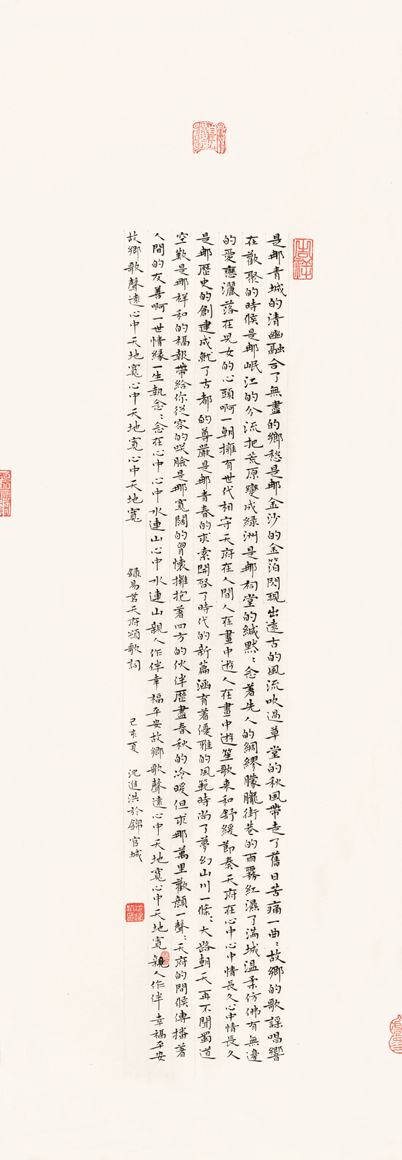 是那青城的清幽融合了無盡的鄉愁是那金沙的金箔閃現出遠古的風流吹過草堂的秋風帶走了舊日苦痛一曲：故鄉的歌謠唱響
在歡聚的時候是那岷江的分流把荒原變成綠洲是那祠堂的緘默：念着先人的綢繆朦朧街巷的雨霧紅濕了滿城溫柔仿佛有無邊
的愛戀灑落在兒女的心頭啊一朝擁有世代相守天府在人間人在畫中遊人在畫中遊笙歌來和舒緩節奏天府在心中心中情長久心中情長久
是那歷史的創建成就了古都的尊嚴是那青春的求索開啟了時代的新篇涵育著優雅的風範時尚了夢幻山川一條：大路朝天再不聞蜀道
空歎是那祥和的福報帶給你從容的笑臉是那寬闊的胸懷擁抱著四方的伙伴歷盡春秋的冷暖但求那萬里歡顏一聲：天府的問候傳播著
人間的友善啊一世情緣一生執念：念在心中心中水連山心中水連山親人作伴幸福平安故鄉歌聲遠心中天地寬心中天地寬親人作伴幸福平安
故鄉歌聲遠心中天地寬心中天地寬心中天地寬
錄易茗天府頌歌詞
己亥夏 沈進洪於錦官城
吉祥